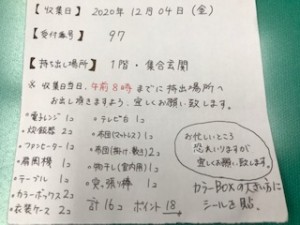 【収集日】 2020年12月04日(金)
【受付番号】 97
【持ち出し場所】 1階・集合玄関
※ 収集日当日、午前8時までに持出場所へ
お出し頂きますよう、宜しくお願い致します。
・電子レンジ 1コ
・炊飯器 2コ
・ファンヒーター 1コ
・扇風機 1コ
・テーブル 1コ
・カラーボックス 2コ
・衣装ケース 2コ
・テレビ台 1コ
・布団(マットレス) 1コ
・布団(掛け、敷き) 2コ
・物干し(室内用) 1コ
・突っ張り棒 1コ
計16コ ポイント18
お忙しいところ
恐れいりますが
宜しくお願い致します。
カラーBOXの大きい方に
シールを貼